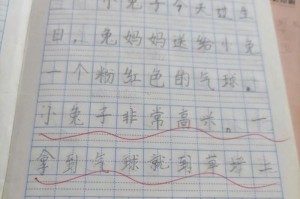 小兔子今天过生
日。兔妈妈送给小兔
一个粉红色的气球。
小兔子非常高兴。一
拿到气球就到草坪上